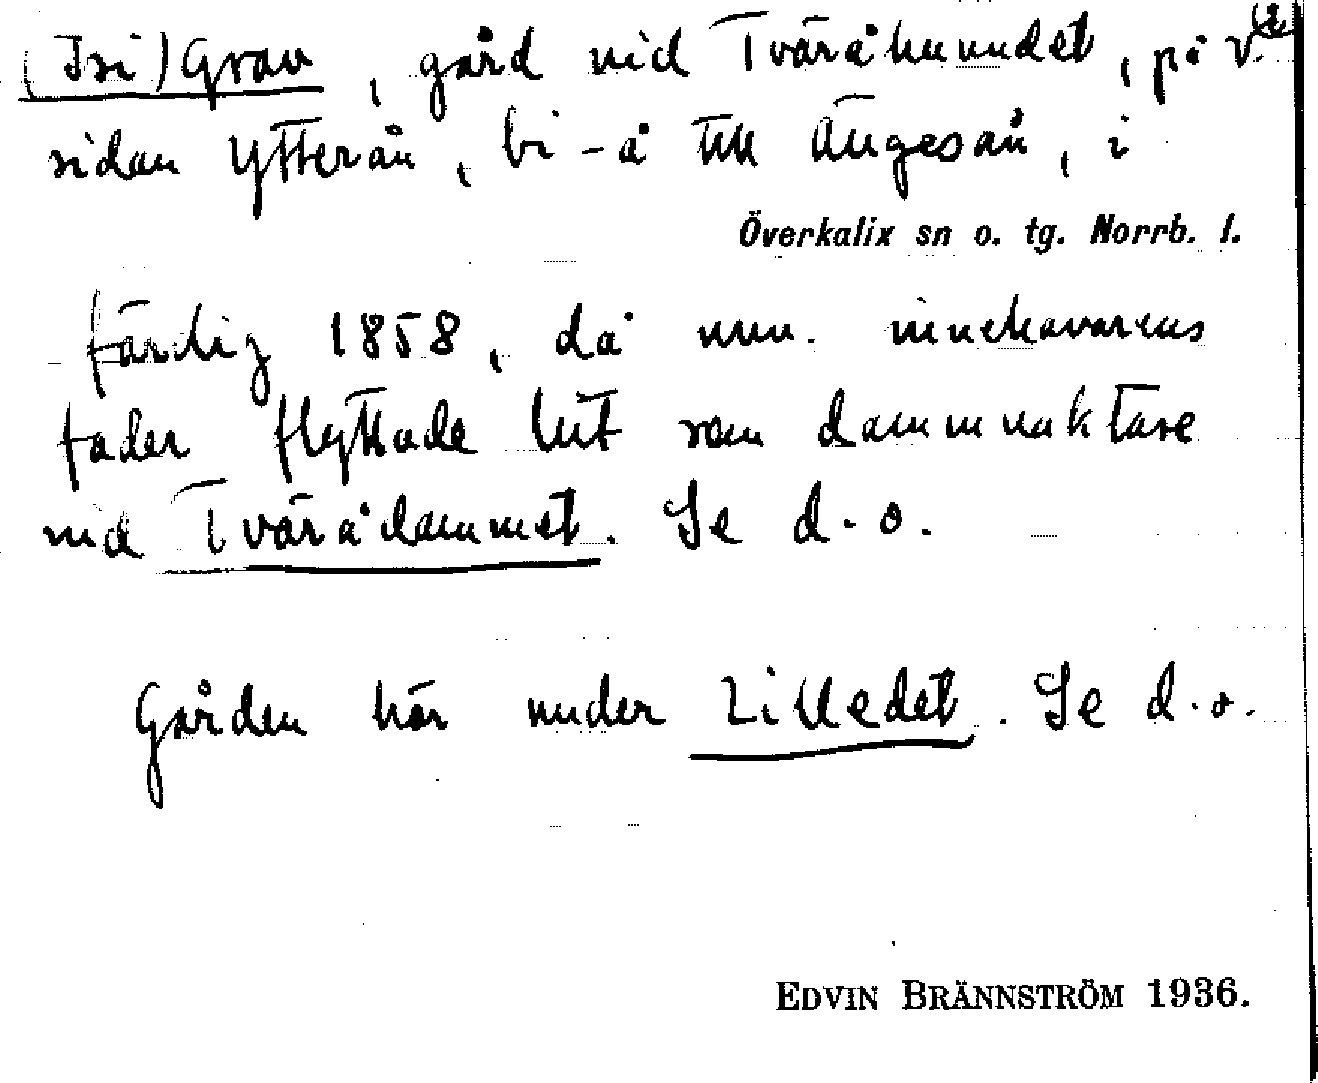 (Isi)Grav, gård vid Tväråhuvudet, på v.
sidan Ytterån, bi-å till Ängesån, i
Överkalix sn o. tg. Norrb. l.
färdig 1858, då nuv. innehavarens
fader flyttade hit som dammvaktare
vid Tvärådammet. Se d.o.
Gården hör under Lilledet. Se d.o.
EDVIN BRÄNNSTRÖM 1936.